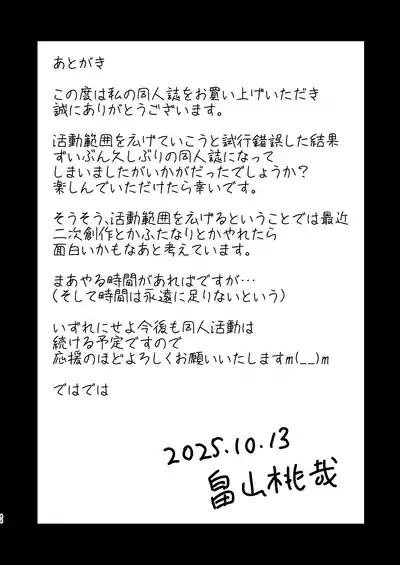 あとがき
この度は私の同人誌をお買い上げいただき
誠にありがとうございます。
活動範囲を広げていこうと試行錯誤した結果
ずいぶん久しぶりの同人誌になって
しまいましたがいかがだったでしょうか？
楽しんでいただけたら幸いです。
そうそう、活動範囲を広げるということでは最近
二次創作とかふたなりとかやれたら
面白いかもなあと考えています。
まあやる時間があればですが…
（そして時間は永遠に足りないという）
いずれにせよ今後も同人活動は
続ける予定ですので
応援のほどよろしくお願いいたしますm(__)m
ではでは
2025.10.13
畠山桃哉